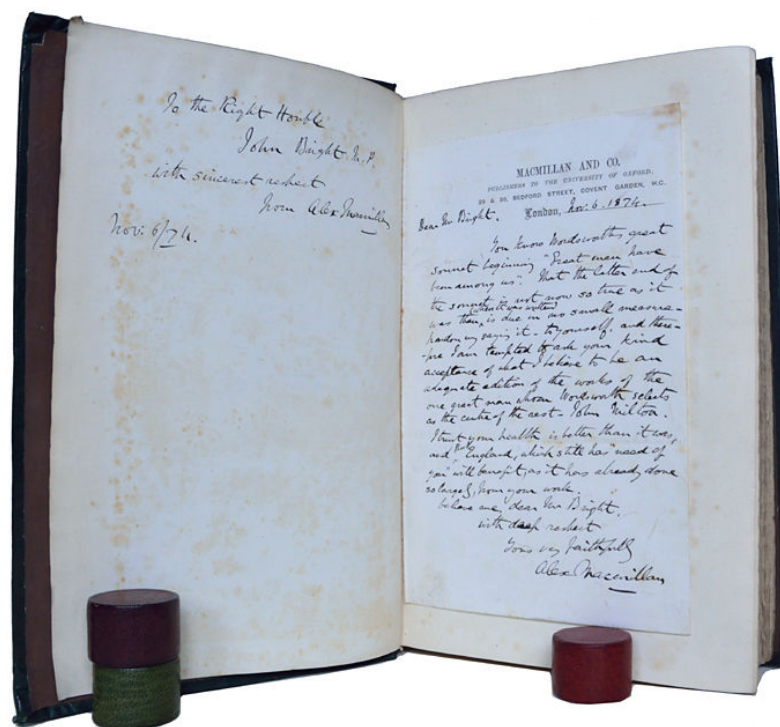 To the Right Honble
John Bright M.P.
with sincerest respect
from Alex Macmillan
Nov: 6/74.
MACMILLAN AND CO.
PUBLISHERS TO THE UNIVERSITY OF OXFORD.
29 & 30, BEDFORD STREET, COVENT GARDEN, W.C.
London, Nov. 6. 1874.
Dear Mr Bright.
You know Wordsworths great
sonnet beginning "Great men have
been among us". That the latter end of
the sonnet is not now so true as it
when it was written
was then, is due in no small measure -
pardon my saying it - to yourself. and there-
-fore I am tempted to ask your kind
acceptance of what I believe to be an
adequate edition of the works of the
one great man whom Wordsworth selects
as the centre of the rest - John Milton.
I trust your health is better than it was,
and that England, which still has "need of
you" will benefit, as it has already done
so largely, from your work.
believe me, dear Mr Bright,
with deep respect
Yours very faithfully
Alex Macmillan